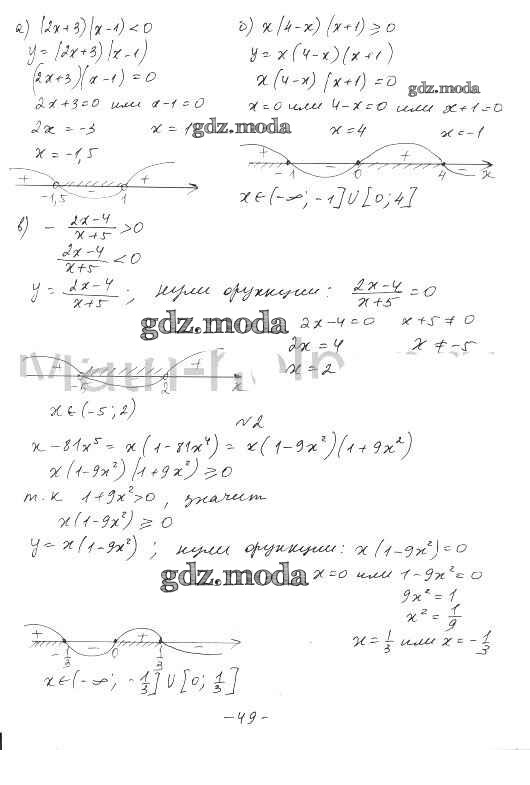 а) (2x+3)(x-1)<0
y=(2x+3)(x-1)
(2x+3)(x-1)=0
2x+3=0 или x-1=0
2x=-3 x=1
x=-1,5
+ - +
-1,5 1
б) x(4-x)(x+1)≥0
y=x(4-x)(x+1)
x(4-x)(x+1)=0
gdz.moda
x=0 или 4-x=0 или x+1=0
gdz.moda
x=4 x=-1
+ - + -
-1 0 4 x
x∈(-∞;-1]∪[0;4]
в) - \frac{2x-4}{x+5}>0
\frac{2x-4}{x+5}<0
y=\frac{2x-4}{x+5}; нули функции: \frac{2x-4}{x+5}=0
gdz.moda
2x-4=0 x+5≠0
2x=4 x≠-5
x=2
+ -
-5 2 x
x∈(-5;2)
№2
x-81x⁵=x(1-81x⁴)=x(1-9x²)(1+9x²)
x(1-9x²)(1+9x²)≥0
т.к 1+9x²>0, значит
x(1-9x²)≥0
y=x(1-9x²); нули функции: x(1-9x²)=0
gdz.moda
x=0 или 1-9x²=0
9x²=1
x²=\frac{1}{9}
x=\frac{1}{3} или x=-\frac{1}{3}
+ - + -
-\frac{1}{3} 0 \frac{1}{3}
x∈(-∞;-\frac{1}{3}]∪[0;\frac{1}{3}]
-49-